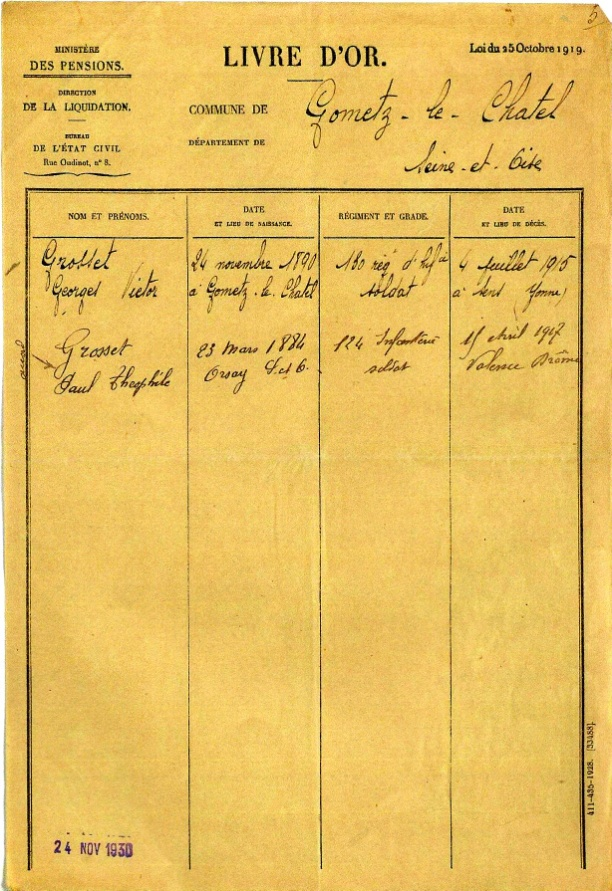 5
MINISTÈRE
DES PENSIONS.
DIRECTION
DE LA LIQUIDATION.
BUREAU
DE L'ÉTAT CIVIL
Rue Oudinot, n° 8.
LIVRE D'OR.
Loi du 25 Octobre 1919.
COMMUNE DE Gometz-le-Chatel
DÉPARTEMENT DE Seine-et-Oise
NOM ET PRÉNOMS.
DATE
ET LIEU DE NAISSANCE.
RÉGIMENT ET GRADE.
DATE
ET LIEU DE DÉCÈS.
Grosset
Georges Victor
24 novembre 1890
à Gometz-le-Chatel
130 rég d'Inf ie
soldat
4 Juillet 1915
à Sens Yonne)
Grosset
Paul Theophile
23 Mars 1884
Orsay S. et O.
124 Infanterie
soldat
15 Avril 1917
Valence Drôme
24 NOV 1930
411-435-1928. [33488].